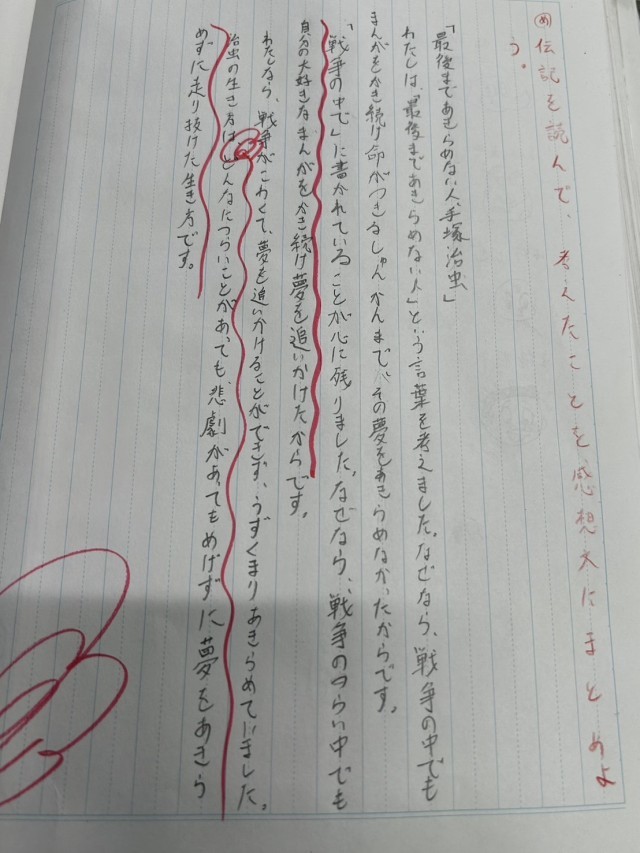 め 伝記を読んで、考えたことを感想文にまとめよ
う。
「最後まであきらめない人、手塚治虫」
わたしは、「最後まであきらめない人」という言葉を考えました。なぜなら、戦争の中でも
まんがをかき続け命がつきるしゅんかんまで、その夢をあきらめなかったからです。
「戦争の中で」に書かれていることが心に残りました。なぜなら、戦争のつらい中でも
自分の大好きなまんがをかき続け夢を追いかけたからです。
わたしなら、戦争がこわくて、夢を追いかけることができず、うずくまりあきらめていました。
治虫の生き方はどんなにつらいことがあっても、悲劇があってもめげずに夢をあきら
めずに走り抜けた生き方です。